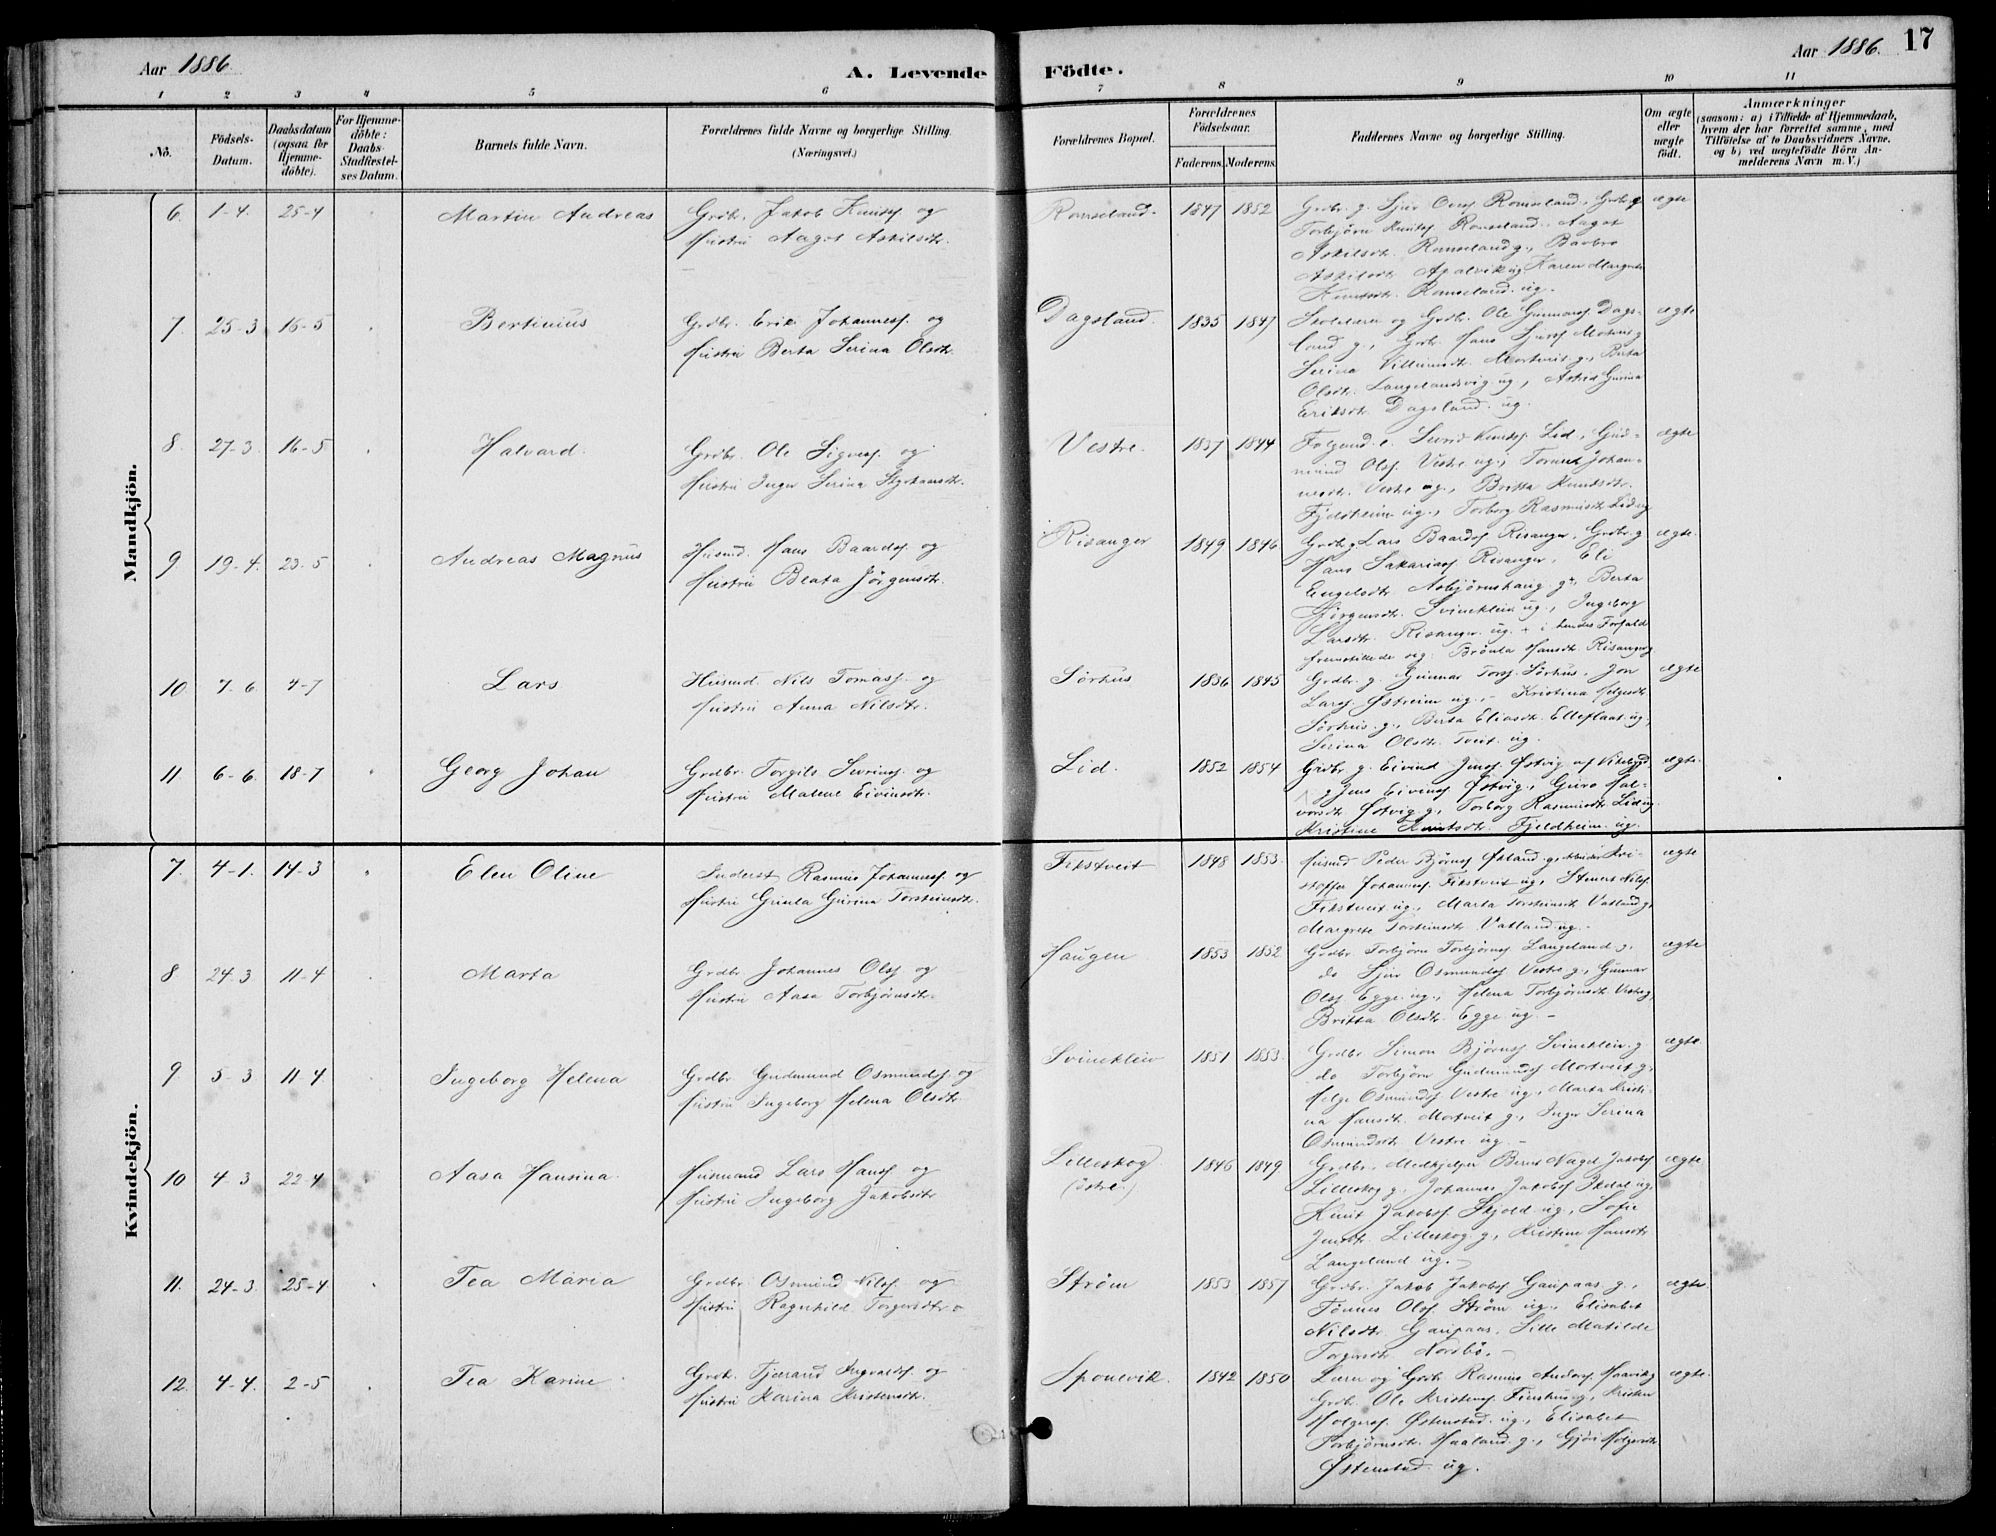 Aar 1886.
A. Levende Födte.
Aar 1886. 17
1 2 3 4 5 6 7 8 9 10 11
No.
Födsels-
Datum.
Daabsdatum
(ogsaa for
Hjemme-
döbte).
For Hjemme-
döbte:
Daabs-
Stadfæstel-
ses Datum.
Barnets fulde Navn.
Forældrenes fulde Navne og borgerlige Stilling.
(Næringsvei.)
Forældrenes Bopæl.
Forældrenes
Födselsaar.
Faderens. Moderens.
Faddernes Navne og borgerlige Stilling.
Om ægte
eller
uægte
födt.
Anmærkninger
(saasom: a) i Tilfælde af Hjemmedaab,
hvem der har forrettet samme, med
Tilföielse af to Daabsvidners Navne,
og b) ved uægtefödte Börn An-
melderens Navn m. V.)
Mandkjön.
6. 1-4. 25-4 Martin Andreas Grdbr. Jakob Knuts. og
Hustru Aagot Askilsdtr.
Romseland. 1847 1852 ægte
Grdbr. g. Sjur Olss. Romseland, Grdbr. g
Torbjörn Knuts. Romseland, Aagot
Askilsdtr. Romseland g., Barbro
Askilsdtr. Apalvik ug, Karen Margrete
Knutsdtr. Romseland. ug.
7. 25-3 16-5 Bertinius Grdbr. Erik Johanness. og
Hustru Berta Serina Olsdtr.
Dagsland. 1835 1847 ægte
Skolelærer og Grdbr. Ole Gunnars. Dags-
land g., Grdbr. Hans
Serina Villumsdtr. Mortveit g., Berta
Olsdtr. Langelandsvig ug, Astrid Gurina
Eriksdtr. Dagsland. ug.
8 27-3 16-5 Halvard. Grdbr. Ole Sigvss. og
Hustru Inger Serina
Vestre. 1837 1844 ægte
Knuts. Lid, Gud-
mund Olss. Vestre ug., Johan-
nesdtr. Vestre ug., Britta Knutsdtr.
Fjeldheim ug., Torborg Rasmusdtr. Lid ug
9 19-4. 23-5 Andreas Magnus Husmd. Hans Baards. og
Hustru Beata Jörgensdtr.
Risanger 1849 1846 ægte.
Grdbr. g Lars Baards. Risanger, Grdbr. g
Hans Sakarias. Risanger, Eli
Engelsdtr. Asbjörnshaug g., Berta
Jörgensdtr. Svineklein ug., Ingeborg
Larsdtr. Risanger. ug. + i hendes Forfald
fremstillede sig: Brönla Hansdtr. Risanger g
10 7-6. 4-7 Lars Husmd. Nils Tomass. og
Hustru Anna Nilsdtr.
Sörhus 1836 1845 ægte
Grdbr. g. Gunnar Torss. Sörhus, Jon
Larss. Östreim ug., Kristina Helgesdtr.
Sörhus. g., Berta Eliasdtr. Elleflaat ug.,
Serina Olsdtr. Tveit. ug.
11 6-6. 18-7 Georg Johan Grdbr. Torgils Sevrins. og
Hustru Malene Eivinsdtr.
Lid. 1852 1854 ægte.
Grdbr g. Eivind Jenss. Østvig af Vikebygd
g Jens Eivins. Østvig., Guro Hal-
vorsdtr. Østvig. g., Torborg Rasmusdtr Lid ug.
Kristine Knutsdtr. Fjeldheim ug.
Kvindekjön.
7. 4-1. 14-3 Elen Oline Inderst Rasmus Johanness. og
Hustru Gunla Gurina Torsteinsdtr.
Fikstveit 1848 1853 ægte
Husmd Peder Björns. Økland g., Arbeider Kri-
stoffer Johanness. Fikstveit ug., Nilss.
Fikstveit ug., Marta Torsteinsdtr Vatland g.,
Margrete Torsteinsdtr Vatland ug. -
8 24-3 11-4 Marta Grdbr. Johannes Olss. og
Hustru Aasa Torbjörnsdtr.
Haugen 1853 1852 ægte
Grdbr Torbjörn Torbjörns. Langeland g,
do Sjur Osmunds. Vestre g., Gunnar
Olss. Egge ug., Helena Torbjörnsdtr. Vestre g,
Britta Olsdtr. Egge ug. -
9. 5-3 11-4. Ingeborg Helena Grdbr. Gudmund Osmunds. og
Hustru Ingeborg Helena Olsdtr
Svineklein 1851 1853. ægte
Grdbr Simon Björns. Svineklein. g
do Torbjörn Gudmunds. Mortveit g,
Helge Osmunds. Vestre ug., Marta Kristi-
na Hansdtr. Mortveit g., Inger Serina
Osmundsdtr Vestre ug. -
10 4-3 22-4 Aasa Hansina Husmand Lars Hanss. og
Hustru Ingeborg Jakobsdtr
Lilleskog
(östre.) 1846 1849 ægte
Grdbr. Medhjelper Bernt Nagel Jakobs.
Lilleskog g. Johannes Jakobs. Ekdal ug,
Knut Jakobs. Skjold ug., Sofie
Jensdtr. Lilleskog g., Kristine Hansdtr
Langeland ug. -
11. 24-3. 25-4 Tea Maria Grdbr. Osmund Nilss. og
Hustru Ragnhild Torgersdtr.
Ström 1853 1857 ægte
Grdbr. Jakob Jakobs. Gaupaas g,
Tönnes Olss. Ström ug., Elisabet
Nilsdtr. Gaupaas, Lille Matilde
Torgersdtr Nordbö. -
12. 4-4. 2-5 Tea Karine Grdbr. Tjerand Ingvalds. og
Hustru Karina Kristensdtr.
Sponevik. 1842 1850 ægte.
Lærer og Grdbr Rasmus Anders. Haavik g
Grdbr. Ole Kristens. ug., Kristen
Holgers. Østenstad. ug., Elisabet
Torbjörnsdtr. Haaland. g., Gjöri Holgersdtr
Østenstad. ug.